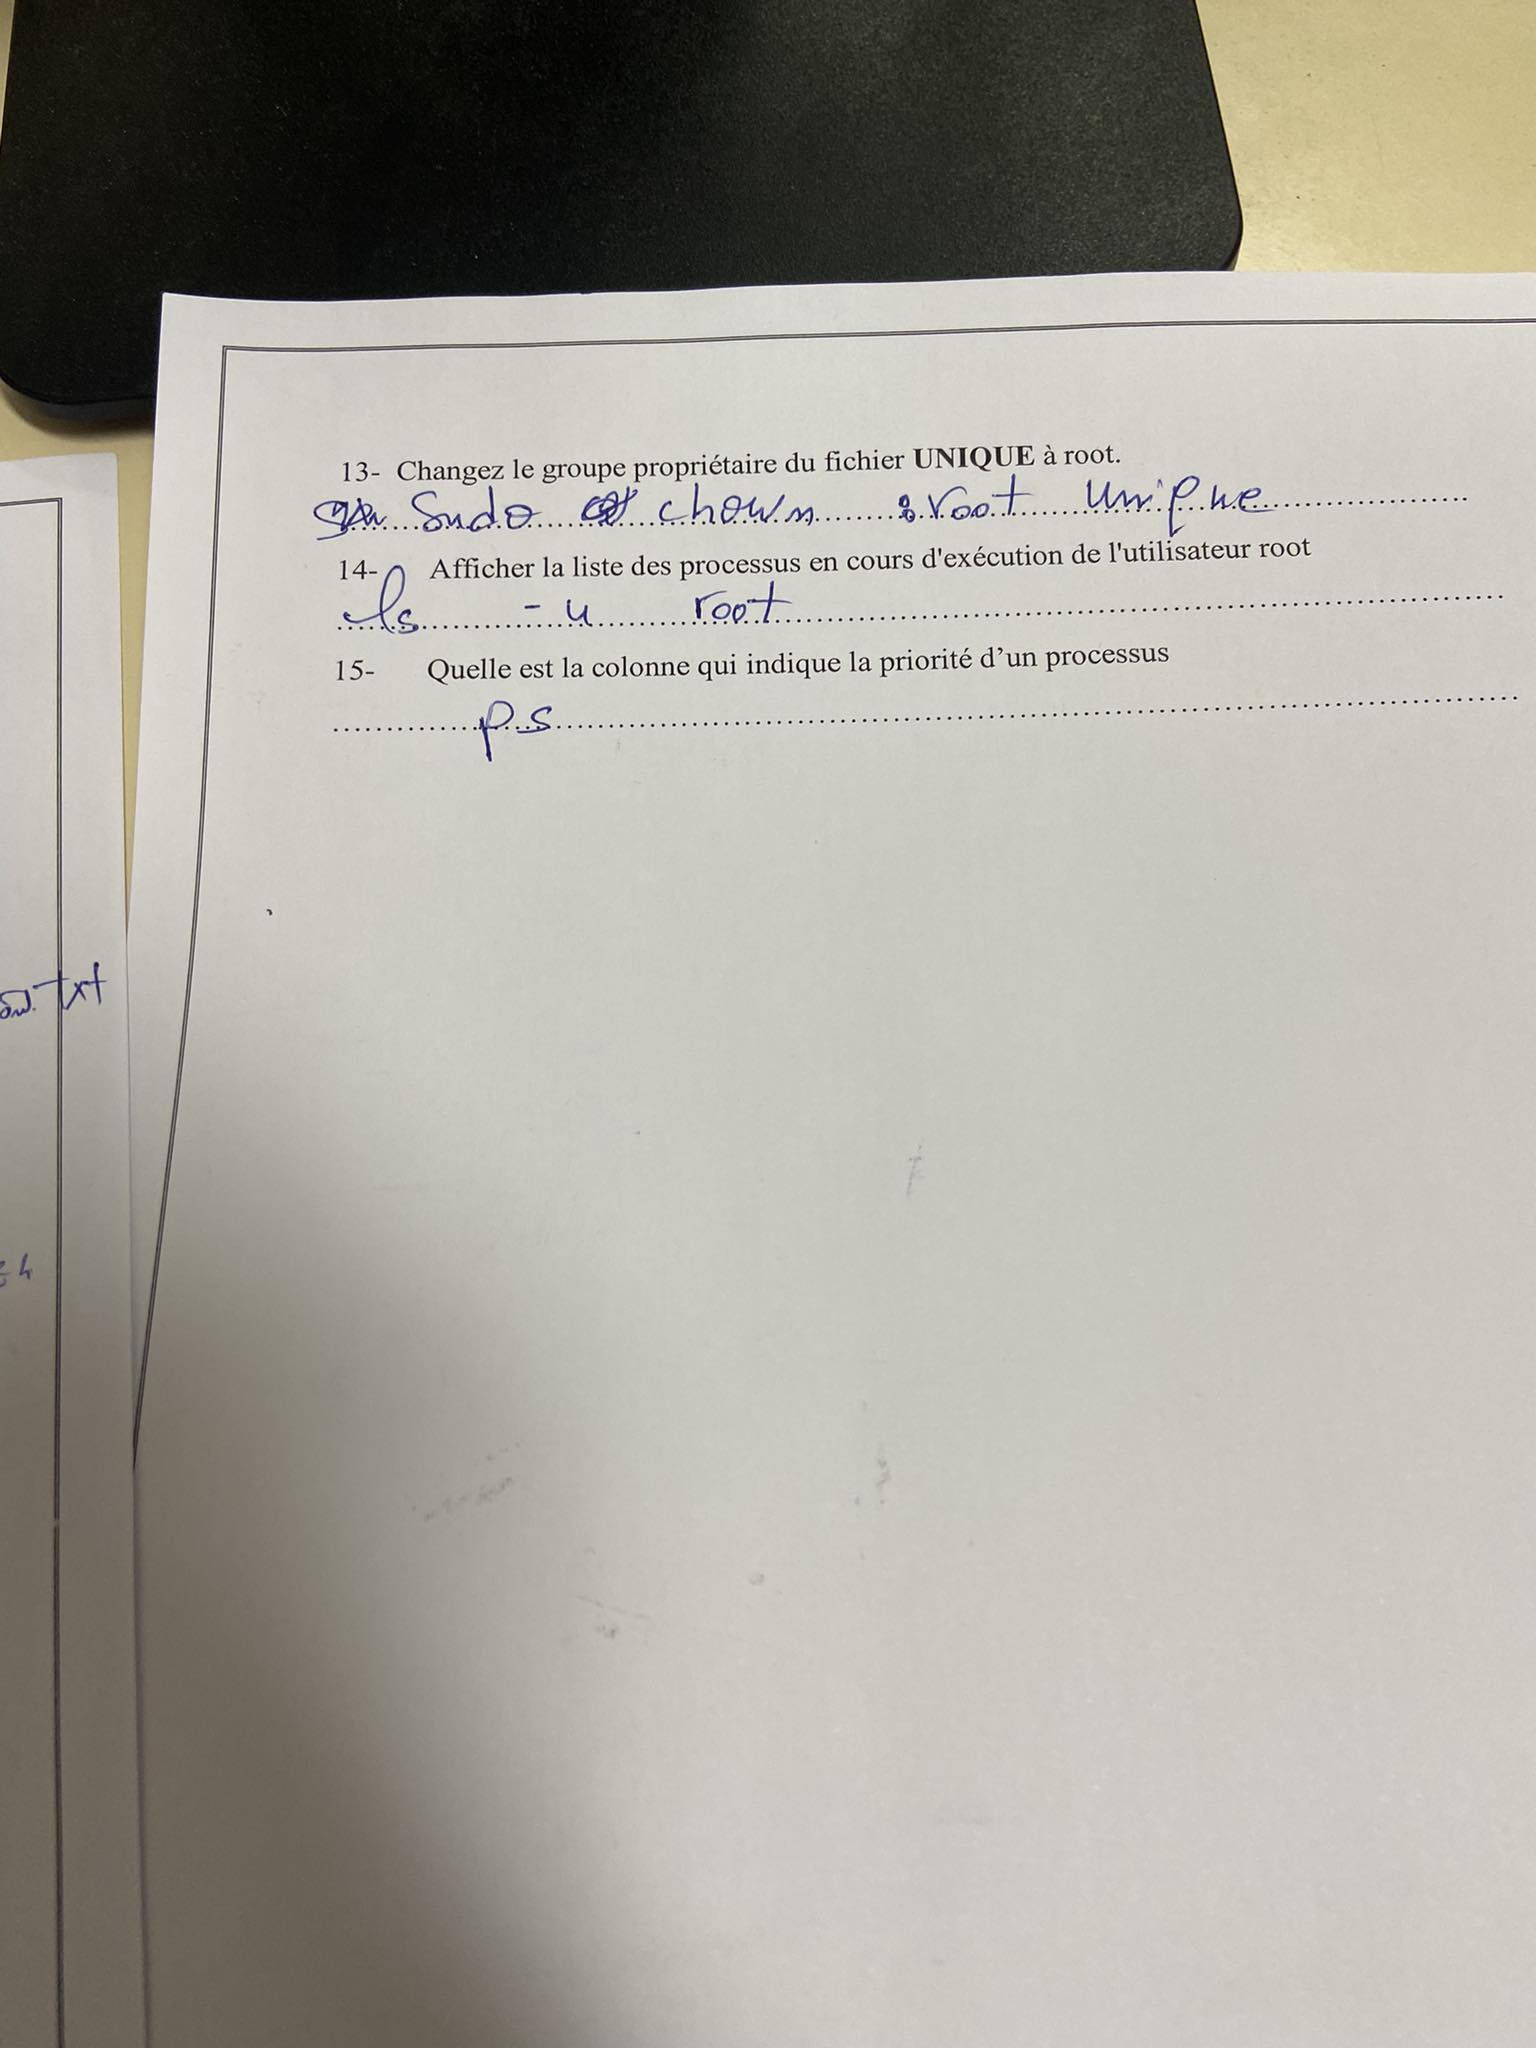 13- Changez le groupe propriétaire du fichier UNIQUE à root.
Sudo chown :root Unique
14- Afficher la liste des processus en cours d'exécution de l'utilisateur root
ls - u root
15- Quelle est la colonne qui indique la priorité d’un processus
ps
txt